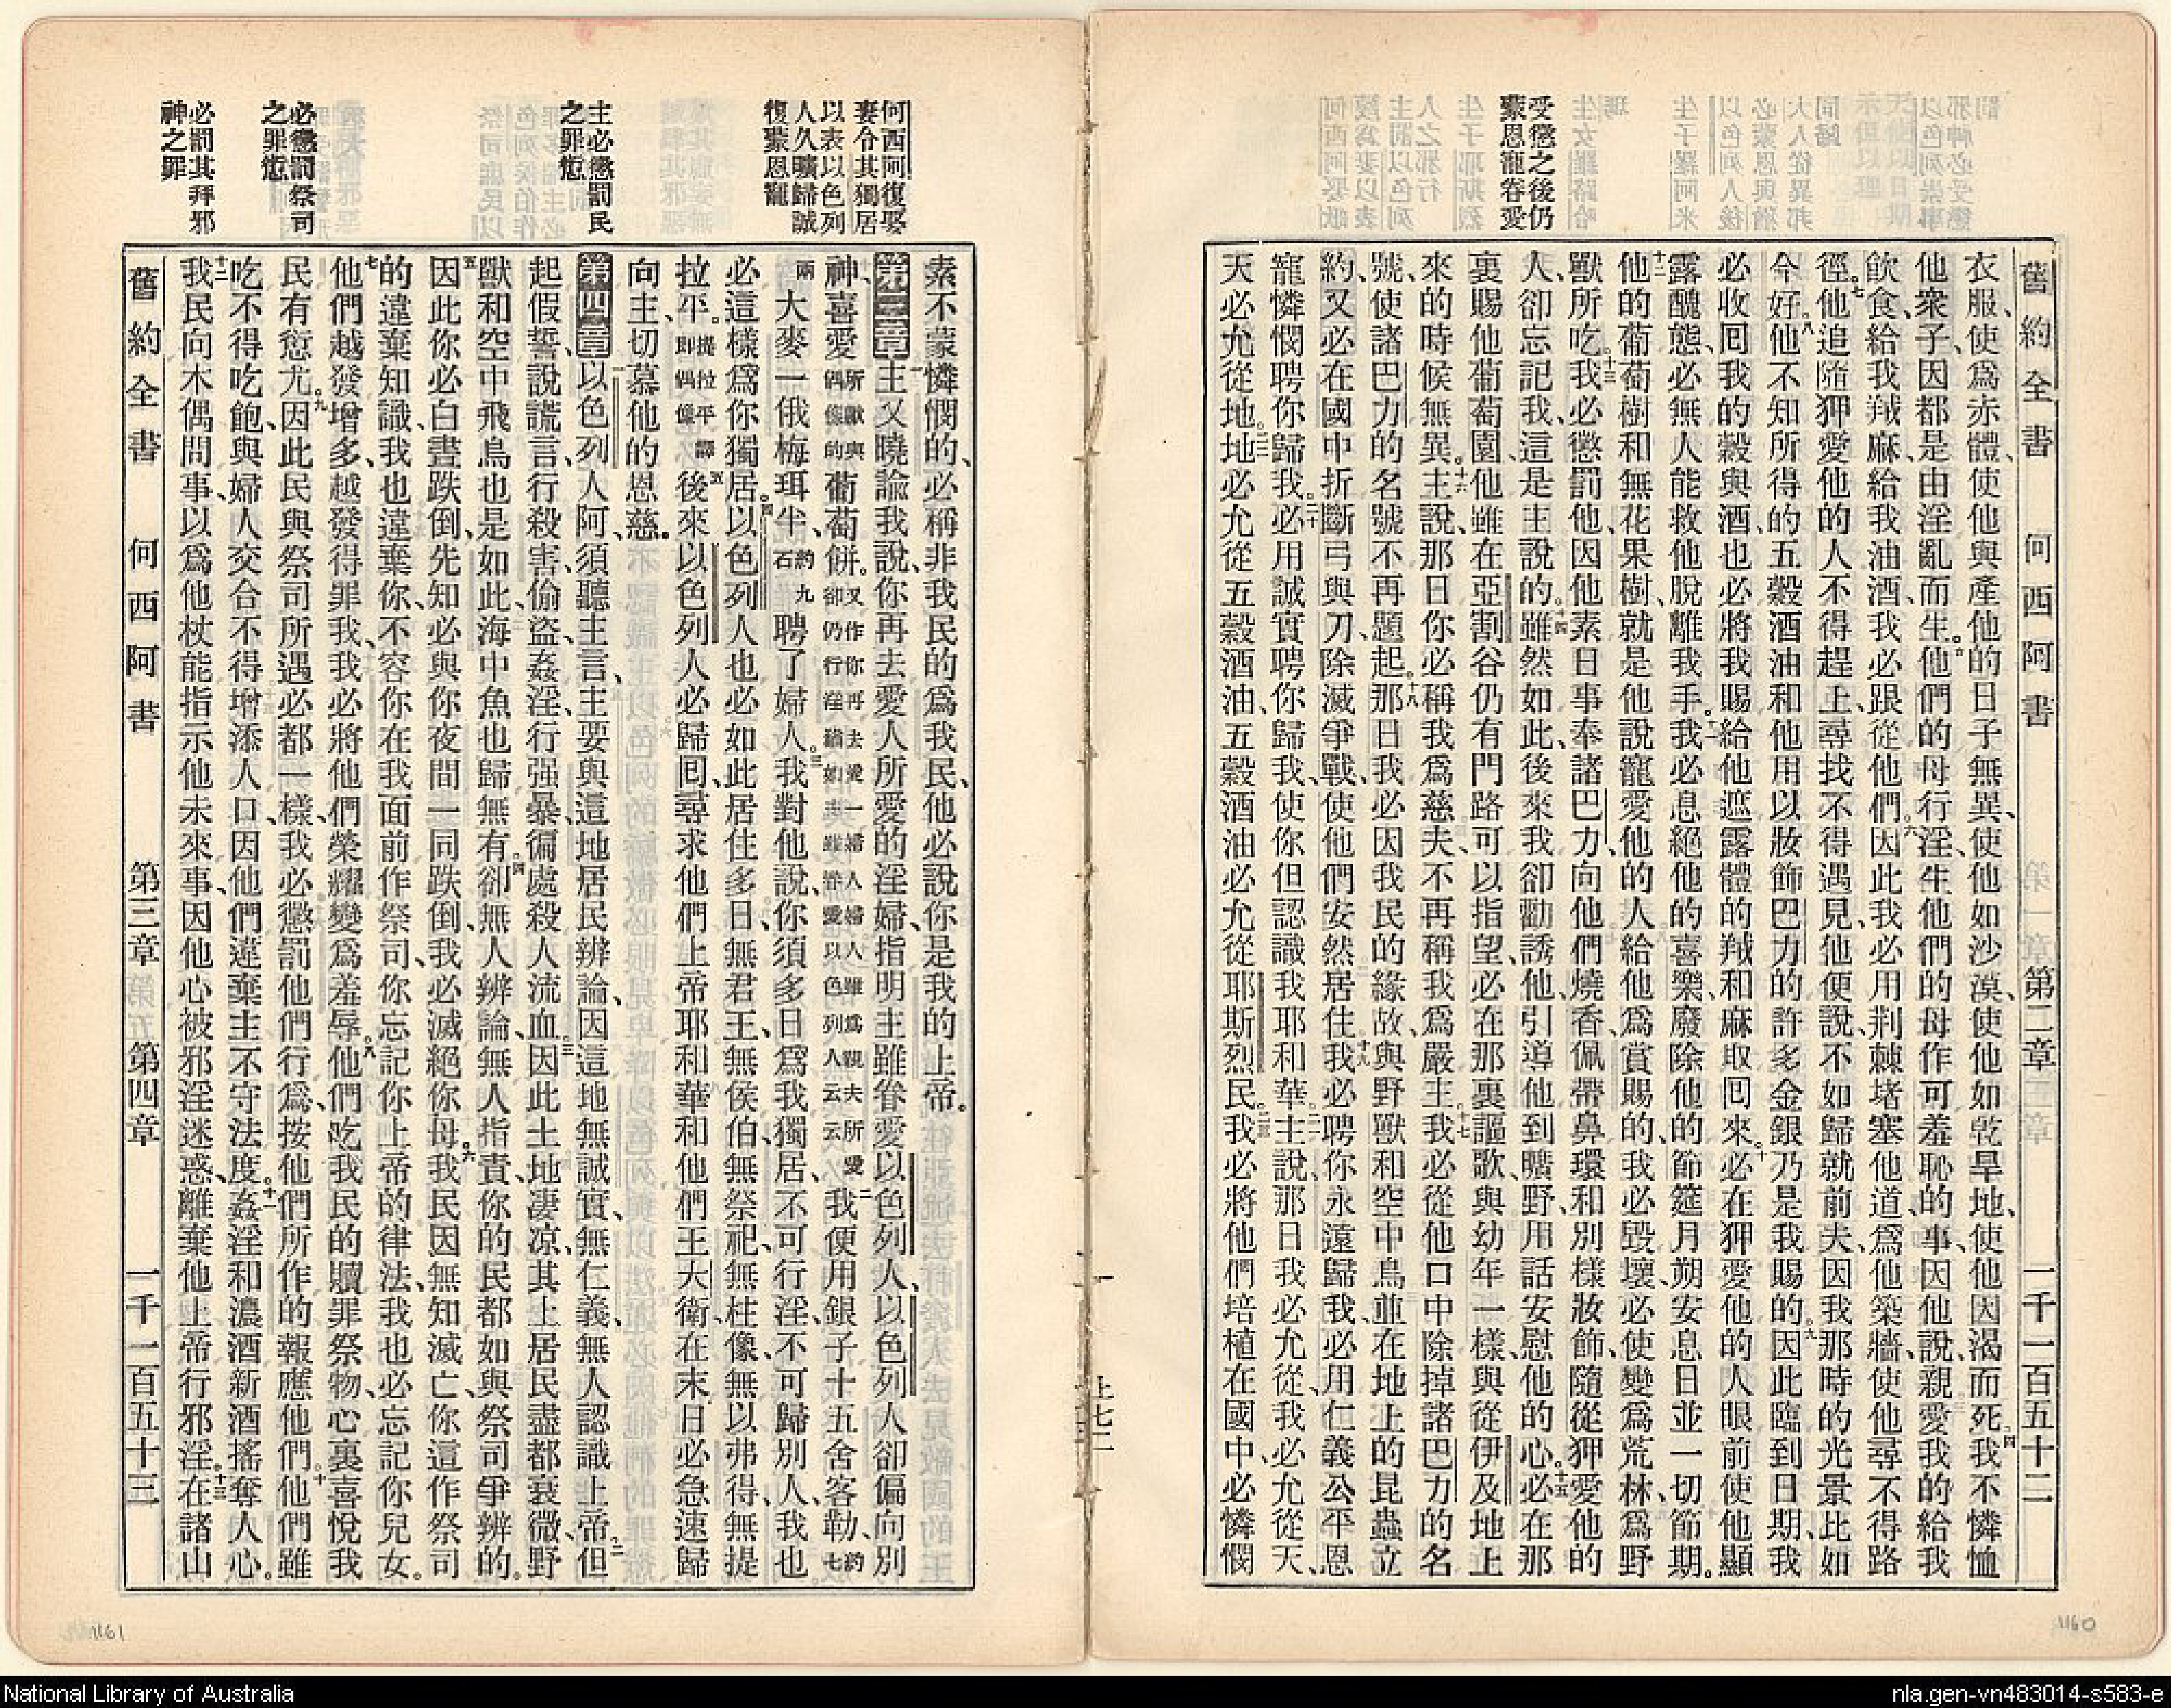 受懲之後仍
蒙恩寵眷愛
舊約全書 何西阿書 第二章 一千一百五十二
衣服、使爲赤體、使他與產他的日子無異、使他如沙漠、使他如乾旱地、使他因渴而死。四我不憐恤
他衆子、因都是由淫亂而生。五他們的母行淫、生他們的母作可羞恥的事、因他說、親愛我的給我
飲食、給我羢麻、給我油酒、我必跟從他們。六因此我必用荆棘堵塞他道、爲他築牆、使他尋不得路
徑。七他追隨狎愛他的人不得趕上、尋找不得遇見、他便說、不如歸就前夫、因我那時的光景比如
今好。八他不知所得的五穀酒油和他用以妝飾巴力的許多金銀乃是我賜的。九因此臨到日期、我
必收囘我的穀與酒、也必將我賜給他遮露體的羢和麻取囘來。十必在狎愛他的人眼前使他顯
露醜態、必無人能救他脫離我手。十一我必息絕他的喜樂、廢除他的節筵月朔安息日並一切節期。
十二他的葡萄樹和無花果樹、就是他說寵愛他的人給他爲賞賜的、我必毀壞、必使變爲荒林、爲野
獸所吃。十三我必懲罰他、因他素日事奉諸巴力、向他們燒香、佩帶鼻環和別樣妝飾、隨從狎愛他的
人、卻忘記我、這是主說的。十四雖然如此、後來我卻勸誘他、引導他到曠野、用話安慰他的心。十五必在那
裏賜他葡萄園、他雖在亞割谷仍有門路可以指望、必在那裏謳歌、與幼年一樣、與從伊及地上
來的時候無異。十六主說、那日你必稱我爲慈夫、不再稱我爲嚴主。十七我必從他口中除掉諸巴力的名
號、使諸巴力的名號不再題起。十八那日我必因我民的緣故、與野獸和空中鳥並在地上的昆蟲立
約、又必在國中折斷弓與刀、除滅爭戰、使他們安然居住。十九我必聘你永遠歸我、必用仁義公平恩
寵憐憫聘你歸我。二十必用誠實聘你歸我、使你但認識我耶和華。二一主說、那日我必允從、我必允從天、
天必允從地。二二地必允從五穀酒油、五穀酒油必允從耶斯烈民。二三我必將他們培植在國中、必憐憫
上七二
何西阿復娶
妻令其獨居
以表以色列
人久曠歸誠
復蒙恩寵
主必懲罰民
之罪愆
必懲罰祭司
之罪愆
必罰其拜邪
神之罪
素不蒙憐憫的、必稱非我民的爲我民、他必說、你是我的上帝。
第三章 一主又曉諭我說、你再去愛人所愛的淫婦、指明主雖眷愛以色列人、以色列人卻偏向別
神、喜愛所獻與偶像的葡萄餅。又作你再去愛一婦人婦人雖爲親夫所愛卻仍行淫猶如主雖眷愛以色列人云云二我便用銀子十五舍客勒、約七
兩大麥一俄梅珥半、約九石聘了婦人。三我對他說、你須多日爲我獨居、不可行淫、不可歸別人、我也
必這樣爲你獨居。四以色列人也必如此居住多日、無君王、無侯伯、無祭祀、無柱像、無以弗得、無提
拉平。提拉平譯卽偶像五後來以色列人必歸囘、尋求他們上帝耶和華和他們王大衛、在末日必急速歸
向主、切慕他的恩慈。
第四章 一以色列人阿、須聽主言、主要與這地居民辨論、因這地無誠實、無仁義、無人認識上帝。二但
起假誓、說謊言、行殺害、偷盜、姦淫、行强暴、徧處殺人流血。三因此土地凄凉、其上居民盡都衰微、野
獸和空中飛鳥也是如此、海中魚也歸無有。四卻無人辨論、無人指責、你的民都如與祭司爭辨的。
五因此你必白晝跌倒、先知必與你夜間一同跌倒、我必滅絕你母。六我民因無知滅亡、你這作祭司
的違棄知識、我也違棄你、不容你在我面前作祭司、你忘記你上帝的律法、我也必忘記你兒女。
七他們越發增多、越發得罪我、我必將他們榮耀變爲羞辱。八他們吃我民的贖罪祭物、心裏喜悅我
民有愆尤。九因此民與祭司所遇必都一樣、我必懲罰他們行爲、按他們所作的報應他們。十他們雖
吃不得吃飽、與婦人交合不得增添人口、因他們違棄主不守法度。十一姦淫和濃酒新酒搖奪人心。
十二我民向木偶問事、以爲他杖能指示他未來事、因他心被邪淫迷惑、離棄他上帝行邪淫。十三在諸山
舊約全書 何西阿書 第三章 第四章 一千一百五十三
1161
1160
National Library of Australia
nla.gen-vn483014-s583-e